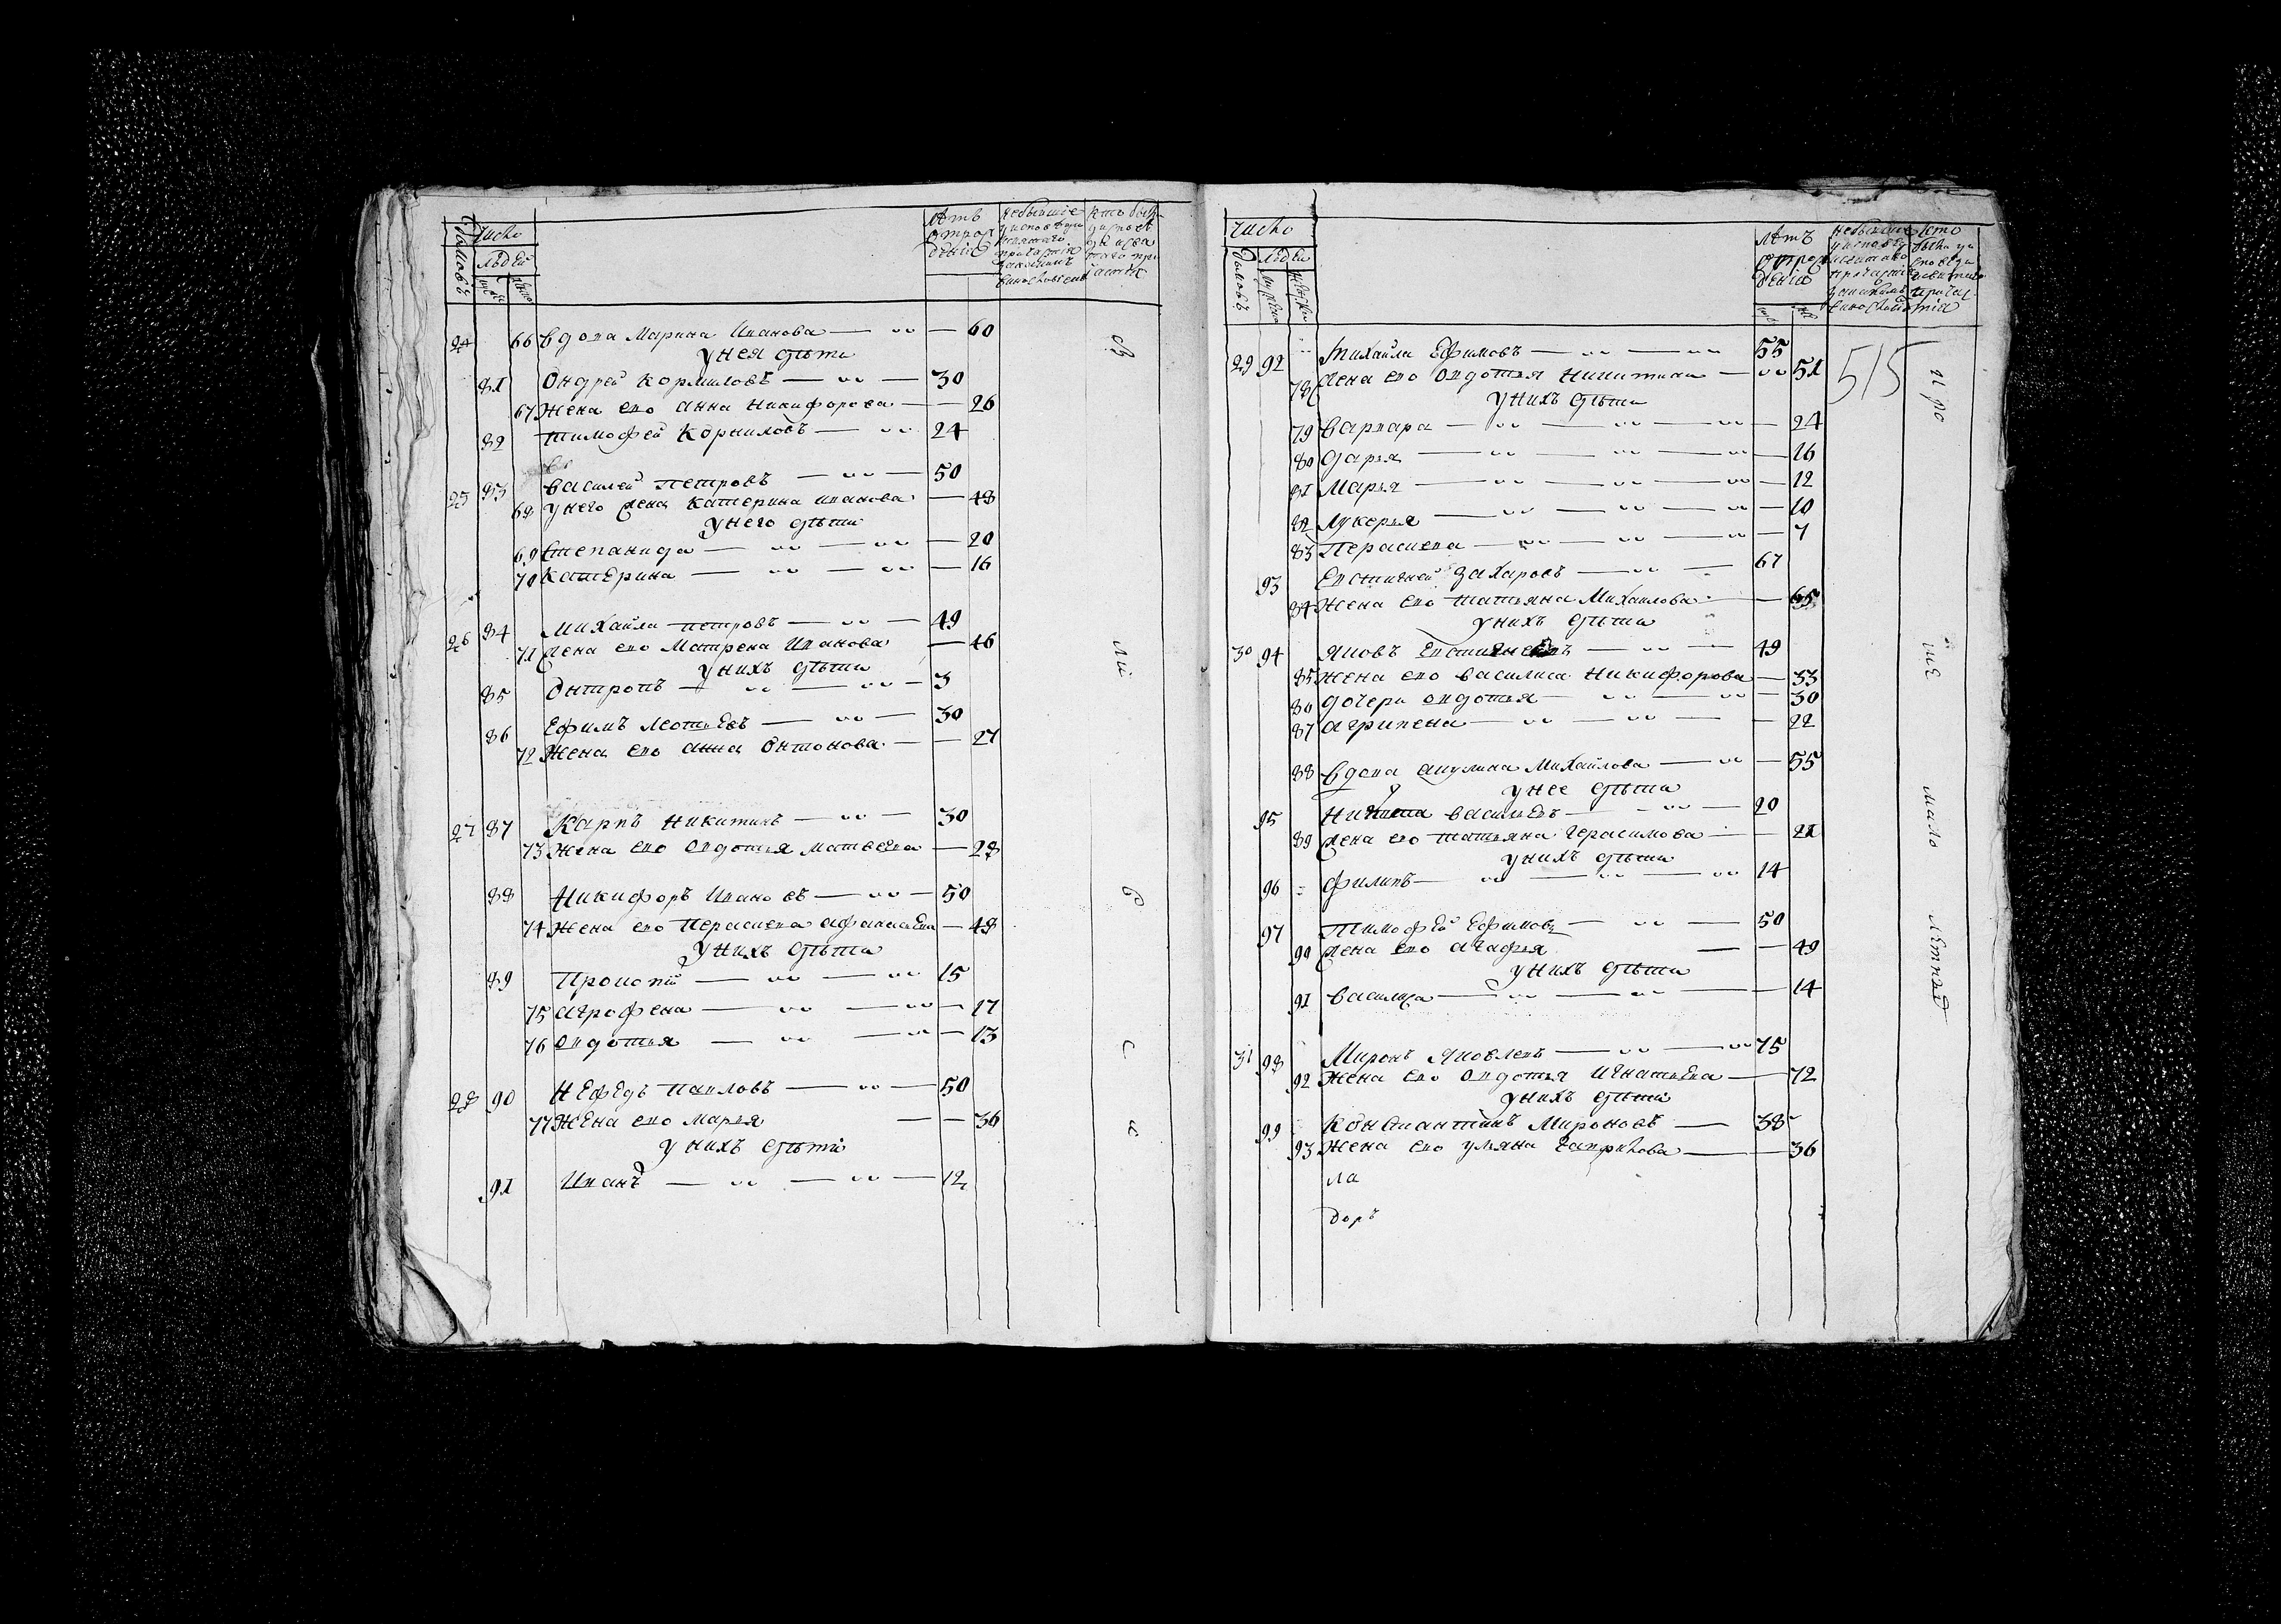 Число
Людей
домовъ
Лѣтъ
24 66 вдова Марина Иванова — 60
у нея дѣти
81 Ондрей Корниловъ — 30
67 Жена ево Анна Никифорова — 26
82 тимофей Корниловъ — 24
25 83 василей петровъ — 50
68 у него жена катерина иванова — 48
у него дѣти
69 степанида — 20
70 катерина — 16
26 84 михайла петровъ — 49
71 жена ево Матрена Иванова — 46
у нихъ дѣти
85 Онтропъ — 3
86 Ефимъ Леонтьевъ — 30
72 Жена ево анна Онтонова — 27
27 87 Карпъ Никитинъ — 30
73 жена ево овдотья матвеева — 28
88 Никифоръ Ивановъ — 50
74 жена ево Парасиева афанасьева — 48
у нихъ дѣти
89 Прокопӣ — 15
75 агрофена — 17
76 овдотья — 13
28 90 Нефедъ павловъ — 50
77 жена ево марья — 36
у нихъ дѣти
91 Иванъ — 12
Число
Людей
домовъ
Лѣтъ
29 92 михайла Ефимовъ — 55
78 жена ево овдотья никитина — 51
у нихъ дѣти
515
79 варвара — 24
80 дарья — 16
81 марья — 12
82 лукерья — 10
83 Парасиева — 7
93 Евстигней захаровъ — 67
84 жена ево татьяна Михаилова — 65
у нихъ дѣти
30 94 яковъ — 49
85 жена ево василиса Никифорова — 33
86 дочери овдотья — 30
87 агрипена — 22
88 вдова акулина Михайлова — 55
у нее дѣти
95 Никита васильевъ — 20
89 жена ево татьяна герасимова — 21
у нихъ дѣти
96 филипъ — 14
97 Тимофей Ефимовъ — 50
90 жена ево агафья — 49
у нихъ дѣти
91 василиса — 14
31 98 Миронъ яковлевъ — 75
92 жена ево овдотья игнатьева — 72
у нихъ дѣти
99 константинъ Мироновъ — 38
93 жена ево ульяна гаврилова — 36
ла
доръ